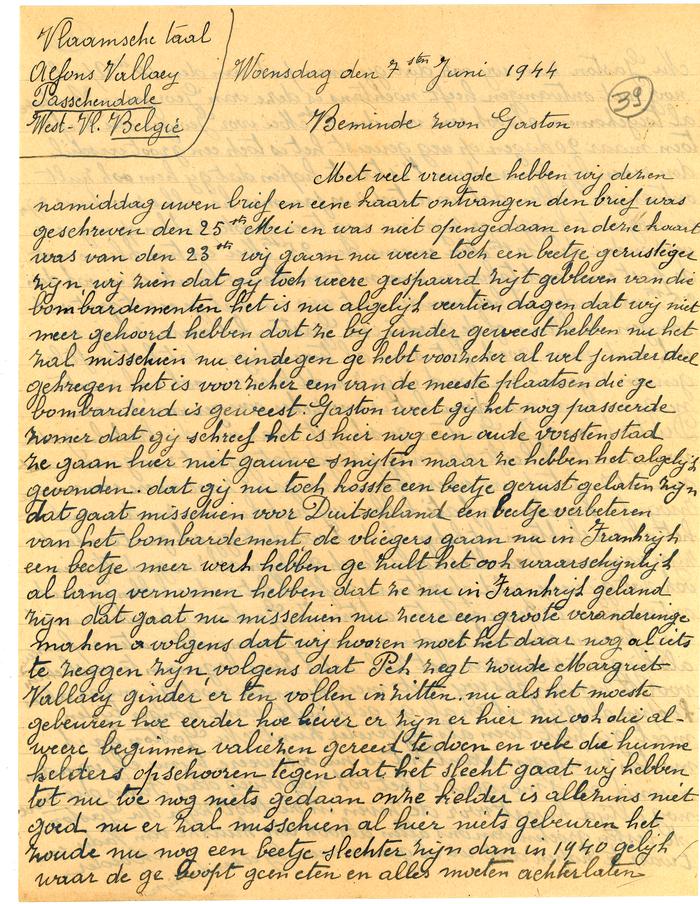 Vlaamsche taal
Alfons Vallaey
Passchendale
West-Vl. België
Woensdag den 7sten Juni 1944
39
Beminde zoon Gaston
Met veel vreugde hebben wij dezen
namiddag uwen brief en eene kaart ontvangen den brief was
geschreven den 25sten Mei en was niet opengedaan en dezie kaart
was van den 23sten wij gaan nu weere toch een beetje gerustiger
zijn wij zien dat gij toch weere gespaard zijt gebleven van die
bombardementen het is nu algelijk veertien dagen dat wij niet
meer gehoord hebben dat ze bij junder geweest hebben nu het
zal misschien nu eindegen ge hebt voorzeker al wel junder deel
gekregen het is voorzeker een van de meeste plaatsen die ge
bombardeerd is geweest. Gaston weet gij het nog passeerde
zomer dat gij schreef het is hier nog een oude vorstenstad
ze gaan hier niet gauwe smijten maar ze hebben het algelijk
gevonden. dat gij nu toch kosste een beetje gerust gelaten zijn
dat gaat misschien voor Duitschland een beetje verbeteren
van het bombardement de vliegers gaan nu in Frankrijk
een beetje meer werk hebben ge zult het ook waarschijnlijk
al lang vernomen hebben dat ze nu in Frankrijk geland
zijn dat gaat nu misschien nu zeere een groote veranderinge
maken a volgens dat wij hooren moet het daar nog al iets
te zeggen zijn, volgens dat Pek zegt zoude Margriet
Vallaey ginder er ten vollen inzitten. nu als het moeste
gebeuren hoe eerder hoe liever er zijn er hier nu ook die al-
weere beginnen valiezen gereed te doen en vele die hunne
kelders opschooren tegen dat het slecht gaat wij hebben
tot nu toe nog niets gedaan onze kelder is allezins niet
goed nu er zal misschien al hier niets gebeuren het
zoude nu nog een beetje slechter zijn dan in 1940 gelijk
waar de ge loopt geen eten en alles moeten achterlaten